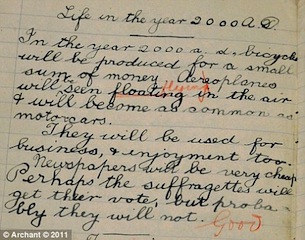 Life in the year 2000 A.D.
In the year 2000 a. d. bicycles
will be produced for a small
sum of money Aeroplanes
will seen floating flying in the air
& will become as common as
motorcars.
They will be used for
business, & enjoyment too.
Newspapers will be very cheap
Perhaps the suffragettes will
get their vote, but proba-
bly they will not. Good
© Archant © 2011